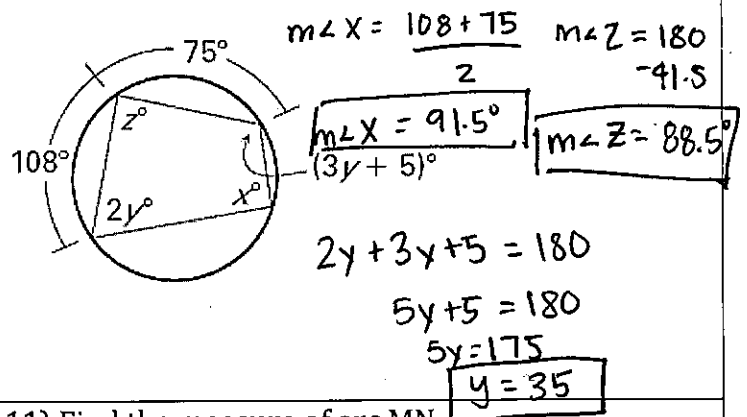 75°
108°
z°
2y°
x°
(3y + 5)°
m∠X = 108 + 75
2
m∠X = 91.5°
m∠Z = 180
-91.5
m∠Z = 88.5°
2y + 3y + 5 = 180
5y + 5 = 180
5y = 175
y = 35
11) Find the measure of arc MN